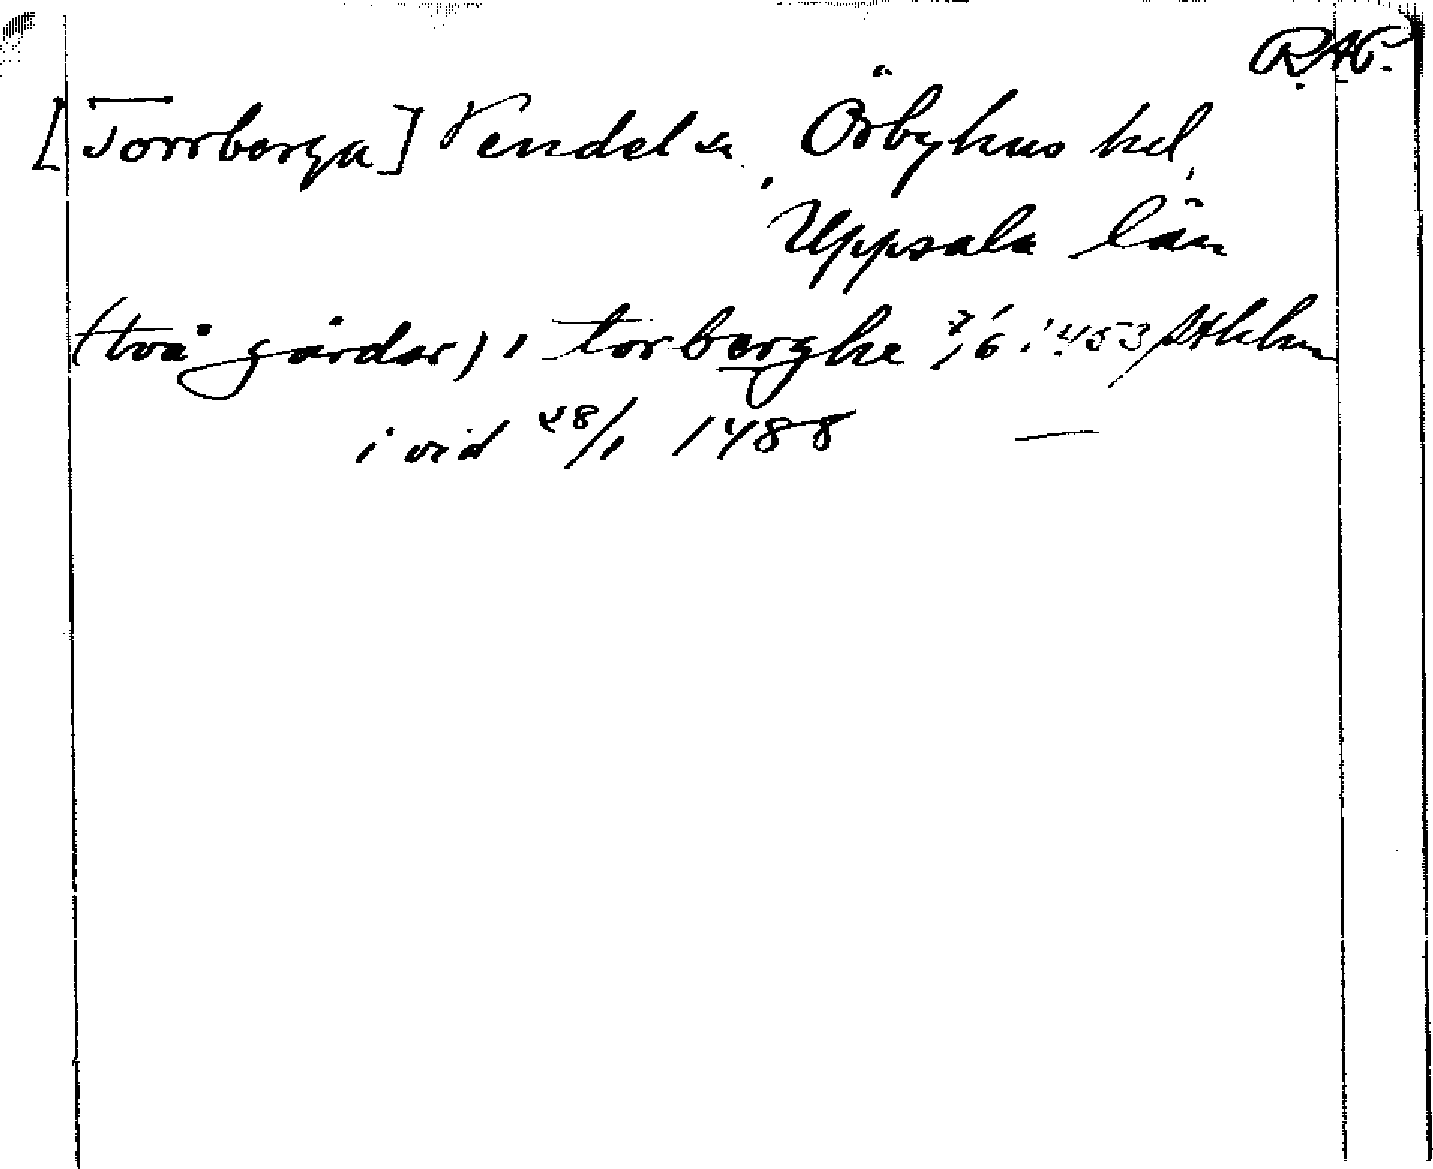 RAP.
[Torrberga] Vendel sn. Örbyhus hd,
Uppsala län
(två gårdar) i torberghe 7/6 1453 Sthlm
i vid 28/1 1488 —